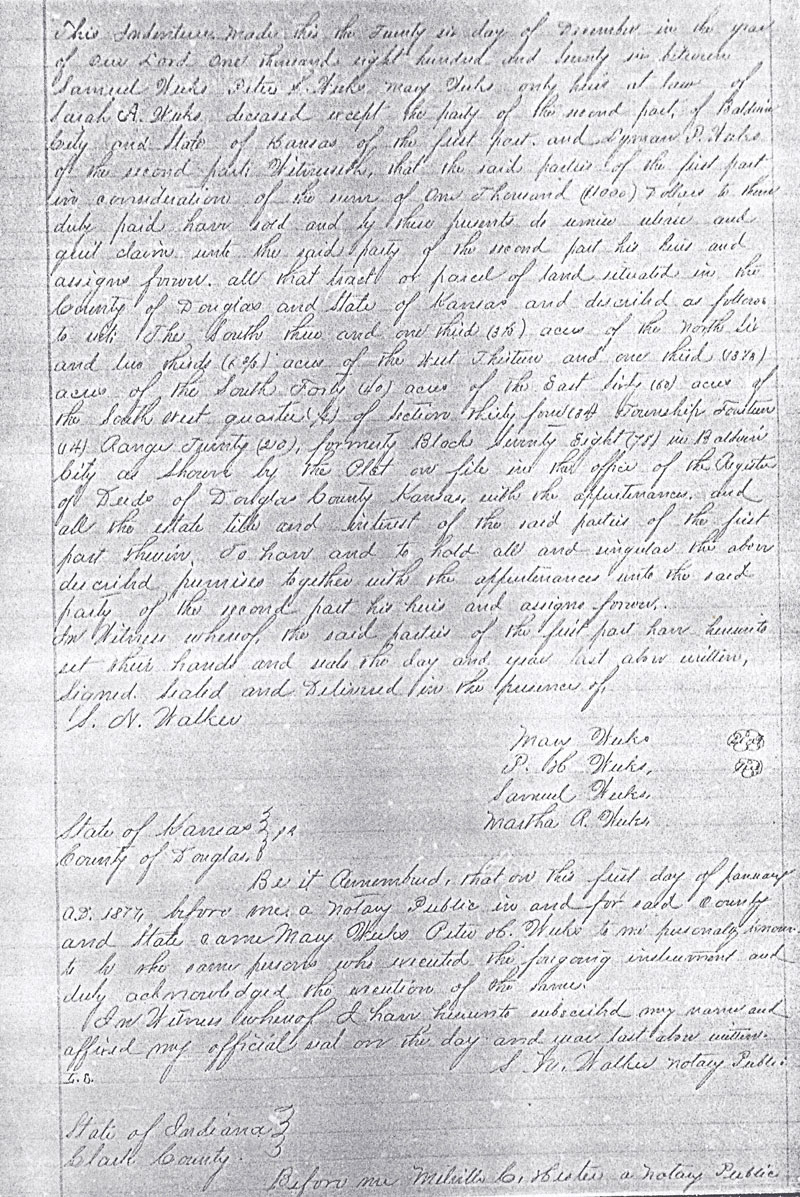 This Indenture Made this the Twenty six day of December in the year
of Our Lord One thousand eight hundred and seventy six between
Samuel Weeks Peter H. Weeks Mary Weeks only heirs at law of
Sarah A. Weeks, deceased except the party of the second part, of Baldwin
City and State of Kansas of the first part. and Lyman P. Weeks
of the second part: Witnesseth, that the said parties of the first part
in consideration of the sum of One Thousand ($1000) Dollars to them
duly paid have sold and by these presents do remise release and
quit claim unto the said party of the second part his heirs and
assigns forever. all that tract or parcel of land situated in the
County of Douglas and State of Kansas and described as follows
to wit: The South three and one third (3⅓) acres of the North Six
and two thirds (6⅔) acres of the West Thirteen and one third (13⅓)
acres of the South Forty (40) acres of the East Sixty (60) acres of
the South West quarter (¼) of Section thirty four (34) Township Fourteen
(14) Range Twenty (20), formerly Block Seventy Eight (78) in Baldwin
City as shown by the Plat on file in the office of the Register
of Deeds of Douglas County Kansas, with the appurtenances, and
all the estate title and interest of the said parties of the first
part therein. To have and to hold all and singular the above
described premises together with the appurtenances unto the said
party of the second part his heirs and assigns forever.
In Witness whereof, the said parties of the first part have hereunto
set their hands and seals the day and year last above written,
Signed Sealed and Delivered in the presence of,
S. N. Walker
Mary Weeks
P. H Weeks,
Samuel Weeks
Martha R. Weeks
State of Kansas } ss
County of Douglas,
Be it Remembered, that on this first day of January
A.D. 1877, before me, a Notary Public in and for said County
and State came Mary Weeks Peter H. Weeks to me personally known
to be the same persons who executed the forgoing instrument and
duly acknowledged the execution of the same.
In Witness whereof I have hereunto subscribed my name and
affixed my official seal on the day and year last above written.
S. N. Walker Notary Public
L.S.
State of Indiana }
Clark County. }
Before me Melville C. Hester a Notary Public